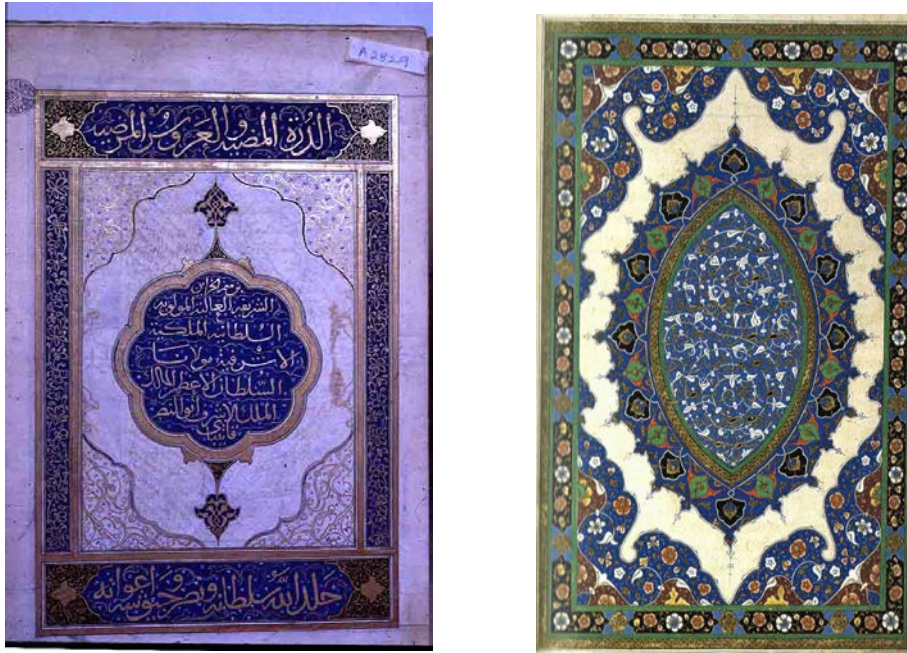 A2829
الدرة المضية والعروس المرضية
برسم الخزانة
الشريفة العالية المولوية
السلطانية الملكية
الاشرفية مولانا
السلطان الاعظم المالك
الملك الاشرف ابو النصر
قايتباي
خلد الله سلطانه ونصر جيوشه واعوانه